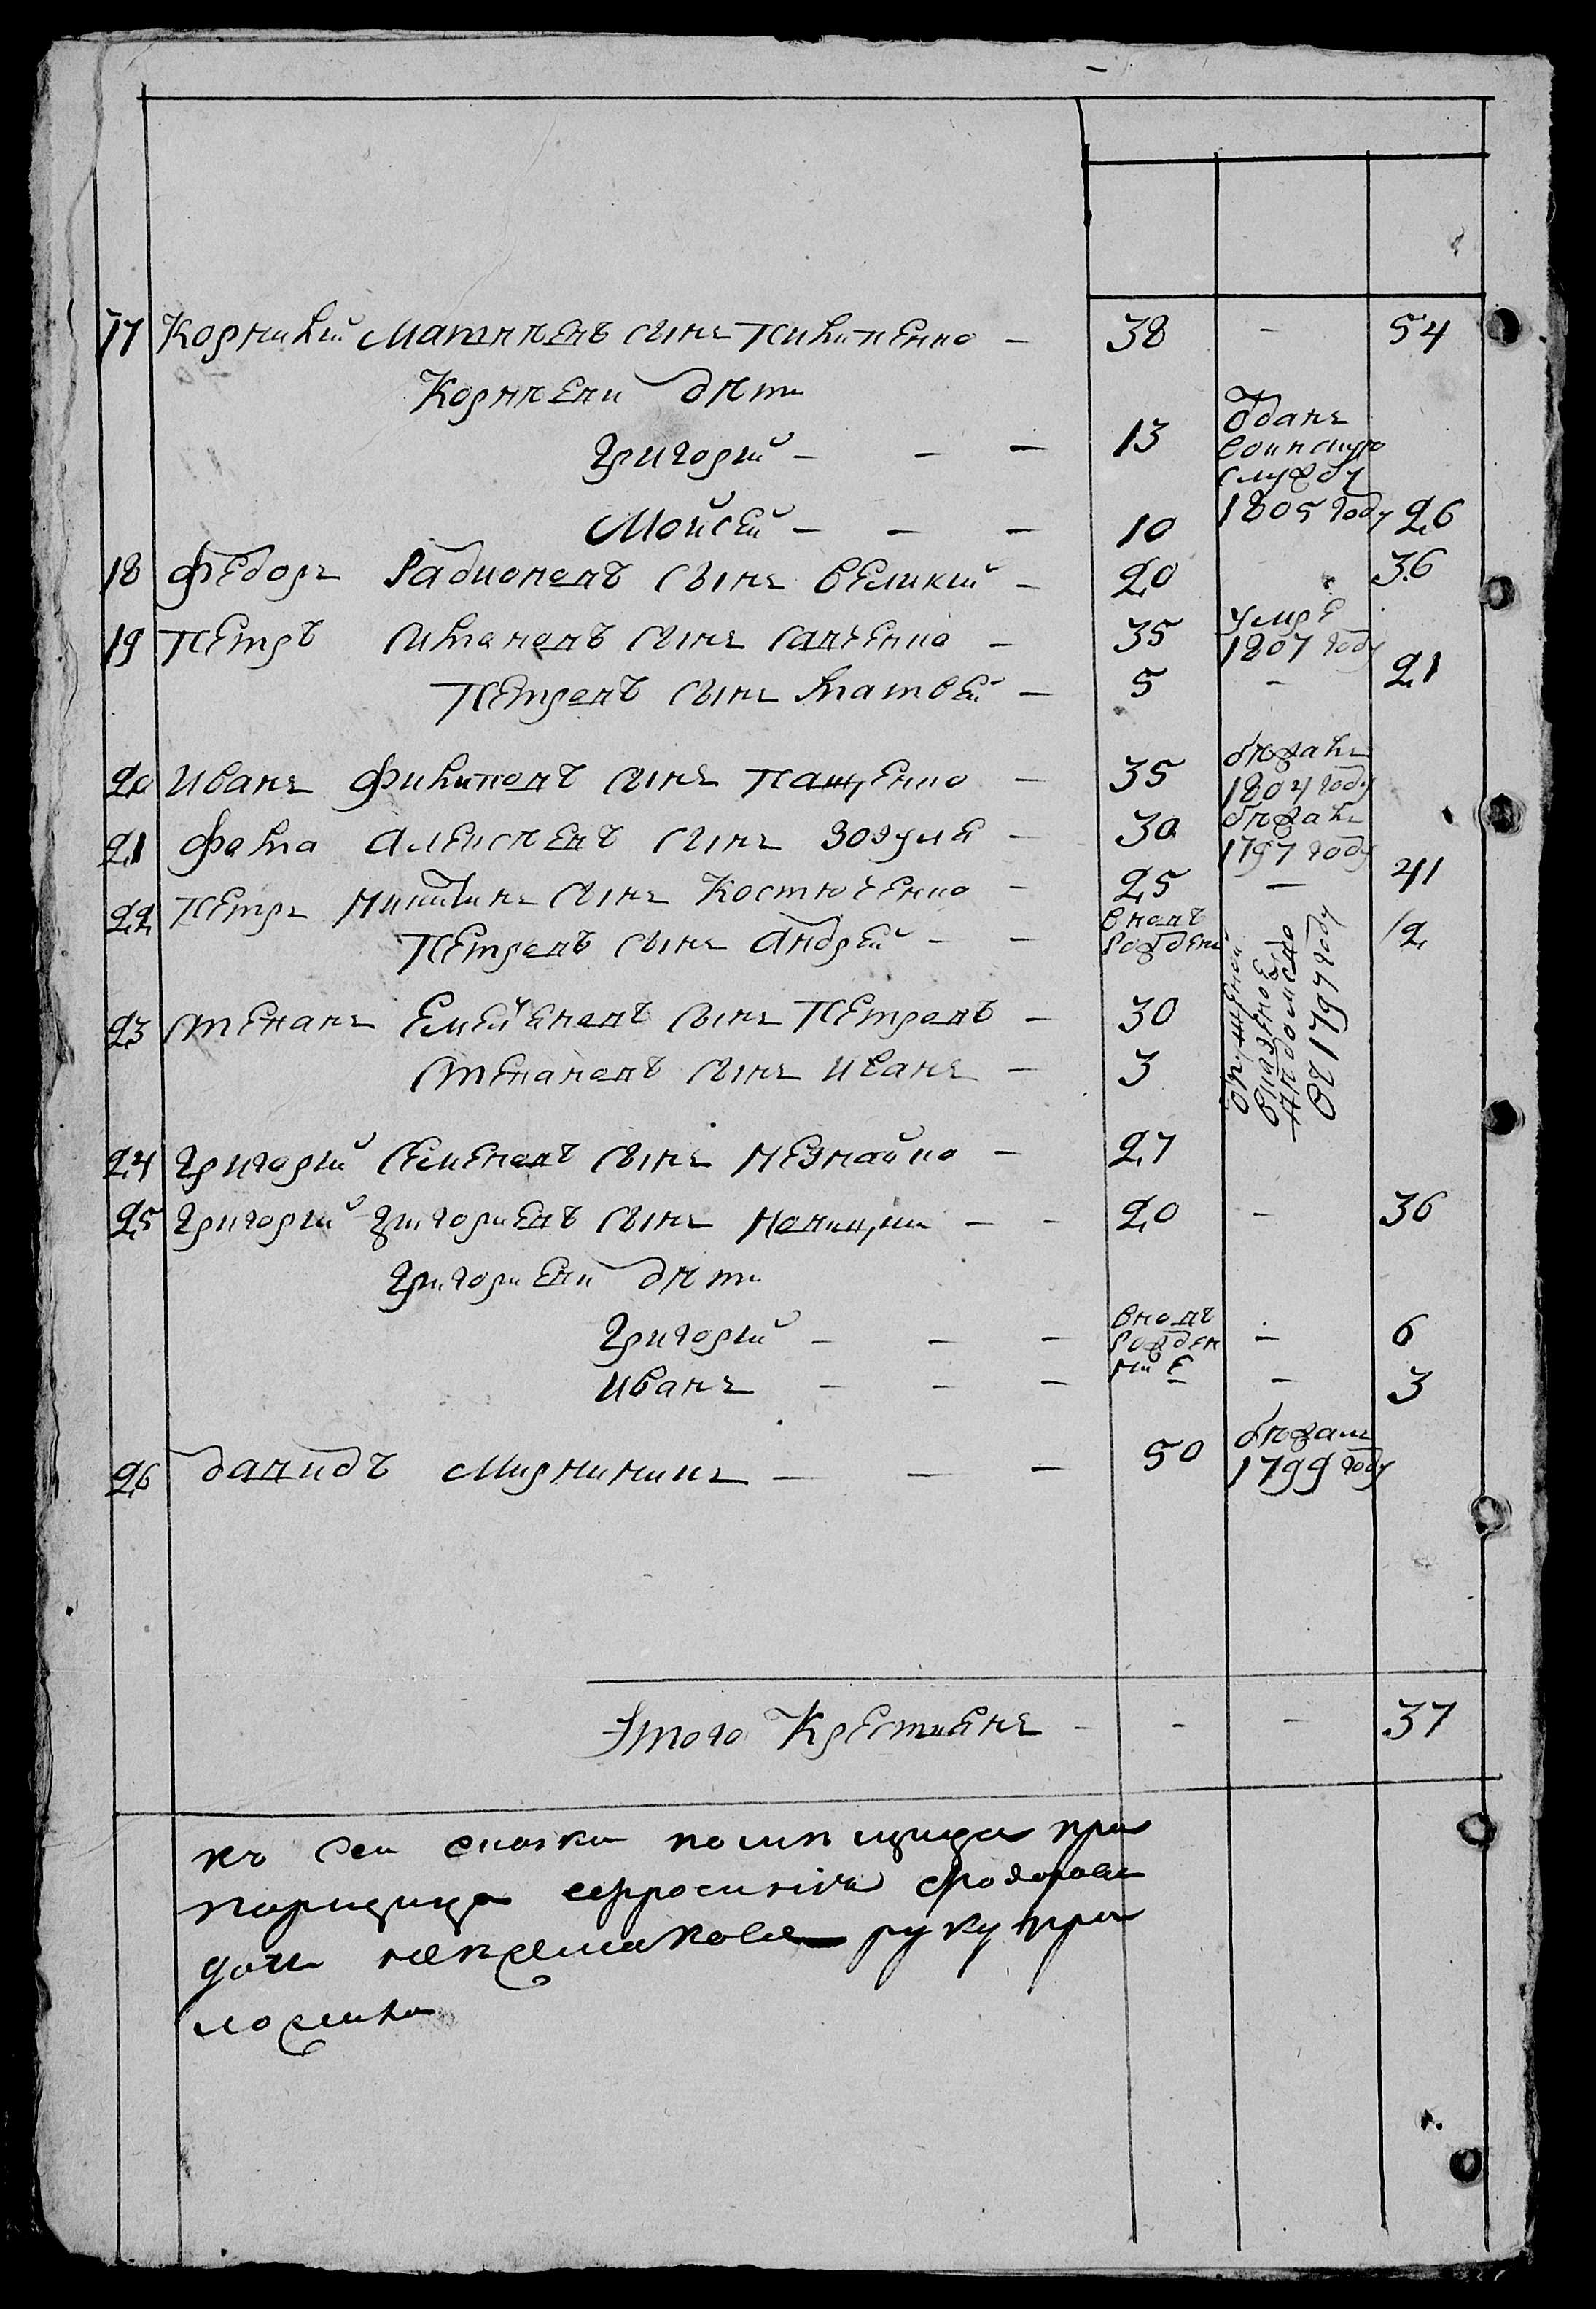 17 Корнилий Матвѣевъ сынъ Пилипенко — 38 — 54
Корнѣеви дѣти
Григорий — — — 13 Отданъ воинскую службу 1805 году
Мойсей — — — 10 26
18 Федоръ Радионовъ сынъ Великий — 20 36
19 Петръ Симоновъ сынъ Савченко — 35 умре 1807 году
Петровъ сынъ Матвей — 5 — 21
20 Иванъ Филиповъ сынъ Пащенко — 35 бѣжалъ 1804 году
21 Фома Алексѣевъ сынъ Зозуля — 30 бѣжалъ 1797 году
22 Петръ Никитинъ сынъ Костюченко — 25 — 41
Петровъ сынъ Андрей — — вновь рожденъ 12
23 Степанъ Емельяновъ сынъ Петровъ — 30
Степановъ сынъ Иванъ — 3
отъ 1797 году
24 Григорий Семеновъ сынъ Незнайко — 27
25 Григорий Григориевъ сынъ — — 20 — 36
Григориеви дѣти
Григорий — — — вновь рожден — 6
Иванъ — — — ние — 3
26 Давидъ — — — 50 бѣжалъ 1799 году
Итого Крестьянъ — — — 37
къ сей сказки помѣщица пра
порщица ефросиния Фодорова
дочь руку при
ложила